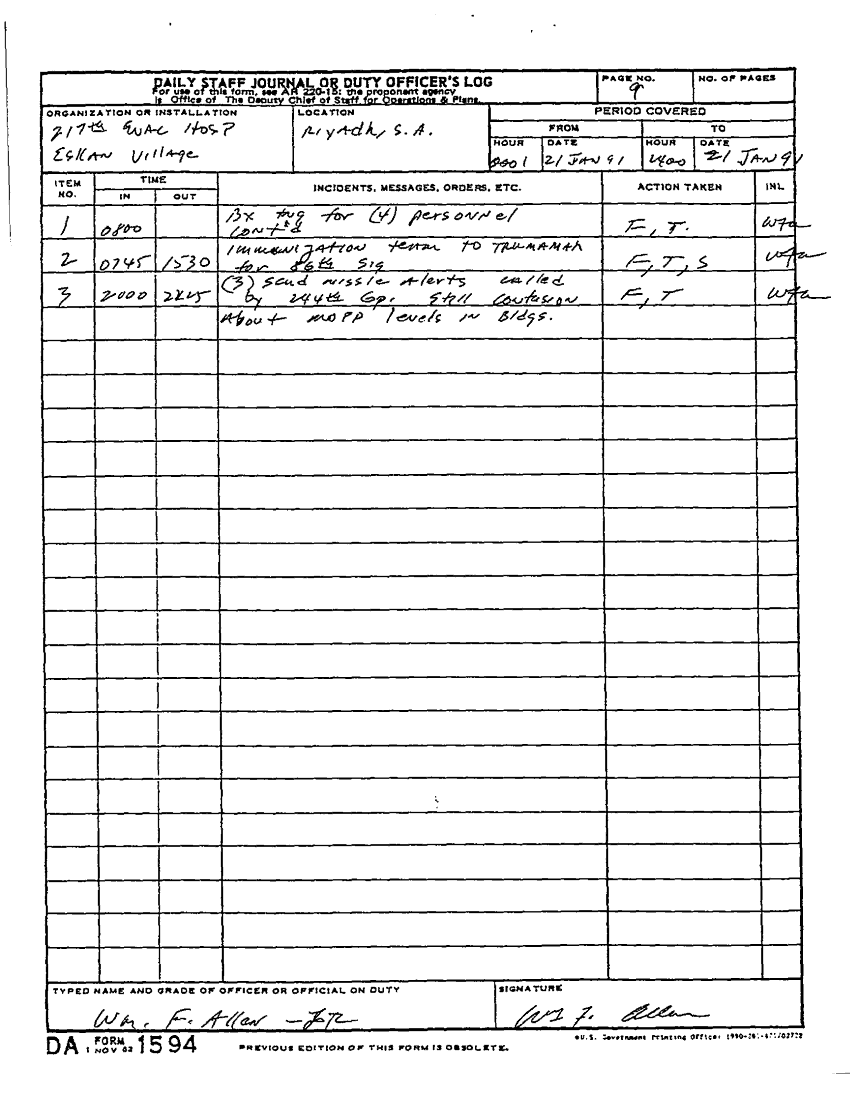 DAILY STAFF JOURNAL OR DUTY OFFICER'S LOG
For use of this form, see AR 220-15; the proponent agency
is Office of The Deputy Chief of Staff for Operations & Plans.
PAGE NO.
9
NO. OF PAGES
ORGANIZATION OR INSTALLATION
217th EVAC HOSP
ESKAN Village
LOCATION
Riyadh, S.A.
PERIOD COVERED
FROM
TO
HOUR
0001
DATE
21 JAN 91
HOUR
2400
DATE
21 JAN 91
ITEM NO.
TIME
IN
OUT
INCIDENTS, MESSAGES, ORDERS, ETC.
ACTION TAKEN
INL
1 0800 for (4) personnel F, T. WFA
Cont'd
2 0745 1530 IMMUNIZATION to THUMAMAH F, T, S WFA
for 86th Sig
3 2000 (3) Scud missle Alerts called F, T WFA
by 244th Gp. Still confusion
About MOPP levels in Bldgs.
TYPED NAME AND GRADE OF OFFICER OR OFFICIAL ON DUTY
Wm. F. Allan
SIGNATURE
Wm F. Allan
DA FORM 1 NOV 62 1594
PREVIOUS EDITION OF THIS FORM IS OBSOLETE.
U.S. Government Printing Office: